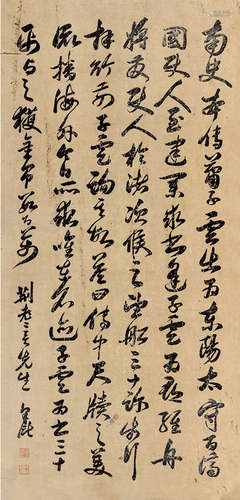 南史本傳蕭子雲出為東陽太守百濟
國使人至建業求書逢子雲為郡維舟
將發使人於渚次候之望船三十許步行
拜行前子雲詢其故答曰侍中尺牘之美
流播海外今日所求唯在名迹子雲為書三十
紙与之獲金帛數百萬
先生